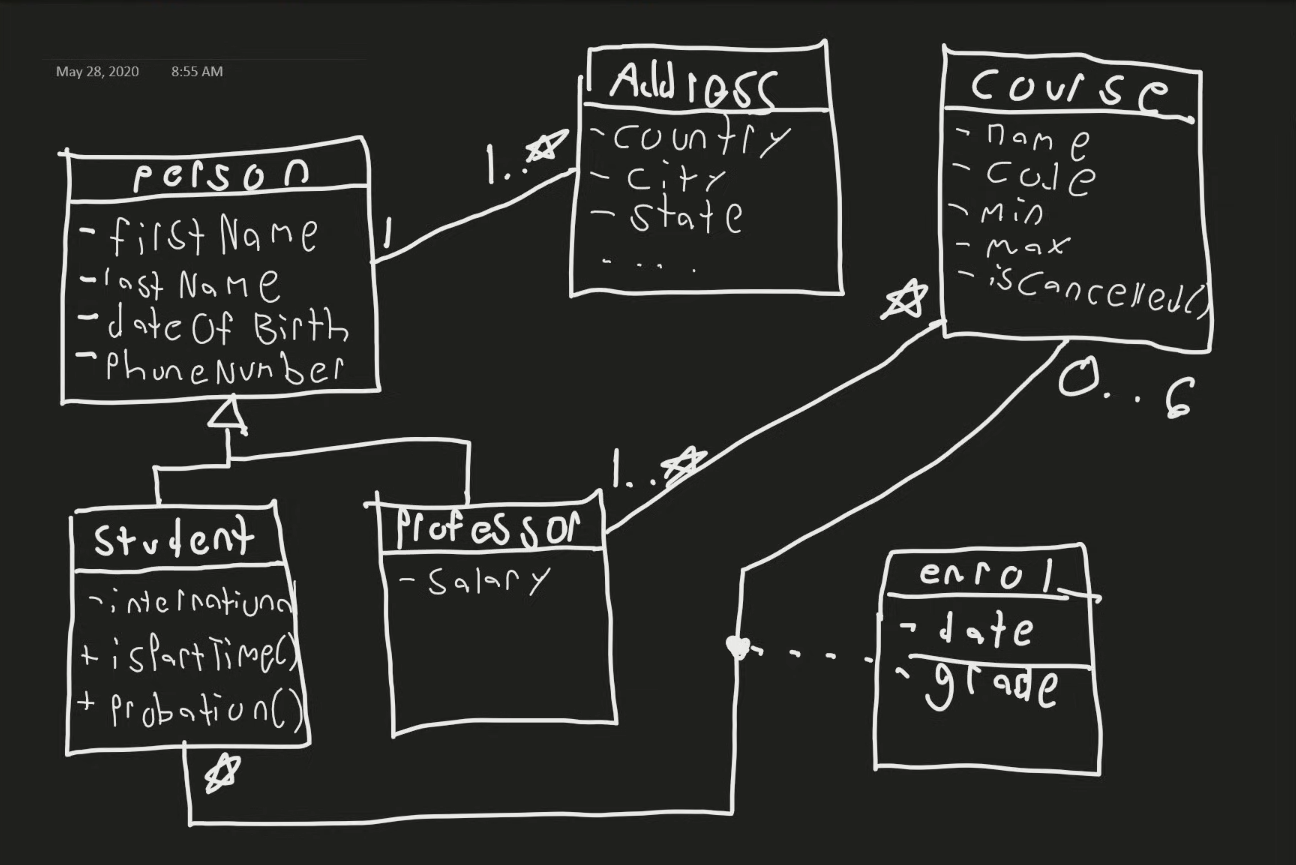 May 28, 2020 8:55 AM
Person
- firstName
- lastName
- dateOfBirth
- PhoneNumber
1
1..*
Address
- country
- city
- state
- ....
Course
- name
- code
- min
- max
- isCancelled()
*
1..*
0..6
Student
- internationa
+ isPartTime()
+ Probation()
*
Professor
- Salary
enrol
- date
- grade